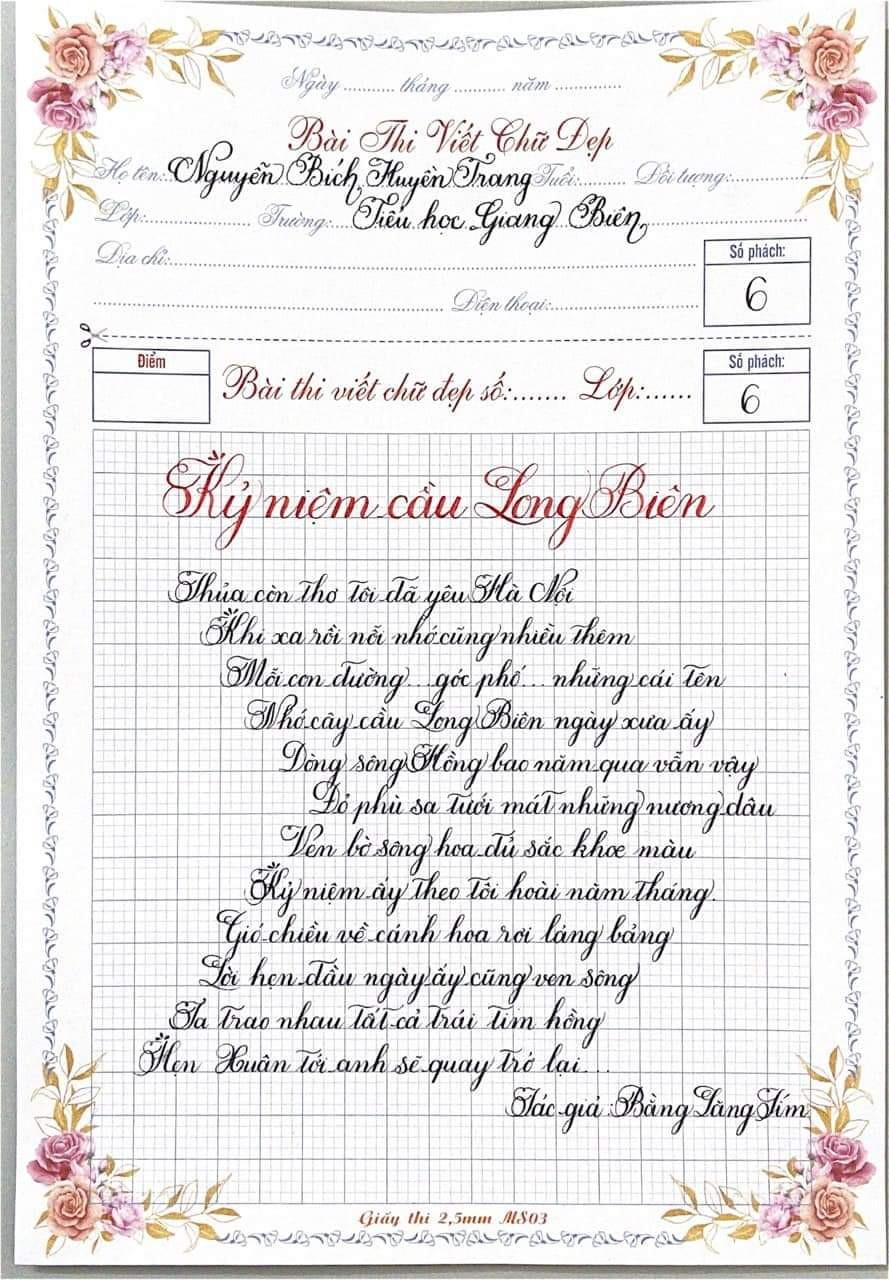 Ngày .......... tháng .......... năm .............
Bài Thi Viết Chữ Đẹp
Họ tên: Nguyễn Bích Huyền Trang Tuổi:......... Đối tượng:...............
Lớp:..................... Trường: Tiểu học Giang Biên
Địa chỉ:.....................................................
Số phách:
6
..................................... Điện thoại:..............................
Điểm
Bài thi viết chữ đẹp số:....... Lớp:......
Số phách:
6
Kỷ niệm cầu Long Biên
Thủa còn thơ tôi đã yêu Hà Nội
Khi xa rồi nỗi nhớ cũng nhiều thêm
Mỗi con đường...góc phố... những cái tên
Nhớ cây cầu Long Biên ngày xưa ấy
Dòng sông Hồng bao năm qua vẫn vậy
Đỏ phù sa tưới mát những nương dâu
Ven bờ sông hoa đủ sắc khoe màu
Kỷ niệm ấy theo tôi hoài năm tháng.
Gió chiều về cánh hoa rơi lảng bảng
Lời hẹn đầu ngày ấy cũng ven sông
Ta trao nhau tất cả trái tim hồng
Hẹn Xuân tới anh sẽ quay trở lại...
Tác giả : Bằng Lăng Tím
Giấy thi 2,5mm MS03